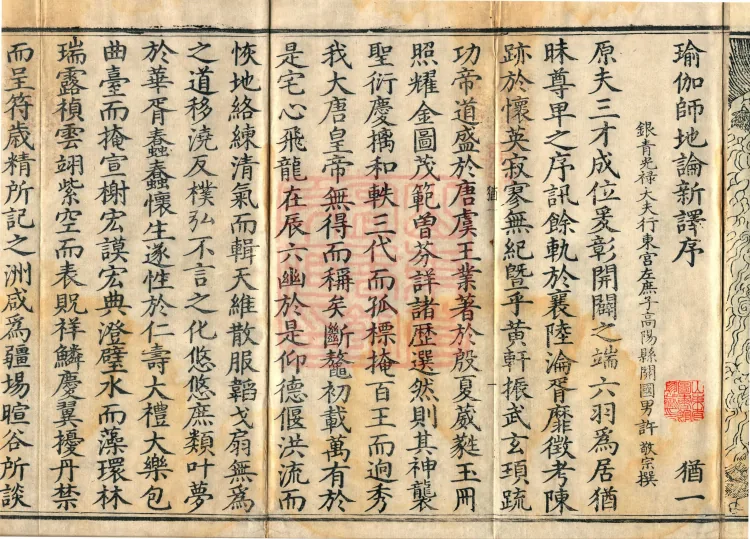 瑜伽師地論新譯序 猶一
銀青光祿大夫行東宮左庶子高陽縣開國男許敬宗撰
原夫三才成位爰彰開闢之端六羽爲居猶
昧尊卑之序訊餘軌於襄陸淪胥靡徵考陳
跡於懷英寂寥無紀曁乎黃軒振武玄頊疏
猶 一
功帝道盛於唐虞王業著於殷夏葳蕤玉冊
照耀金圖茂範曾芬詳諸歷選然則其神襲
聖衍慶摛和軼三代而孤標掩百王而迥秀
我大唐皇帝無得而稱矣斷鼇初載萬有於
是宅心飛龍在辰六幽於是仰德偃洪流而
恢地絡練清氣而輯天維散服韜戈扇無爲
之道移澆反樸弘不言之化悠悠庶類叶夢
於華胥蠢蠢懷生遂性於仁壽大禮大樂包
曲臺而掩宣榭宏謨宏典澄璧水而藻環林
瑞露禎雲翊紫空而表貺祥鱗慶翼擾丹禁
而呈符歲精所記之洲咸爲疆埸暄谷所談